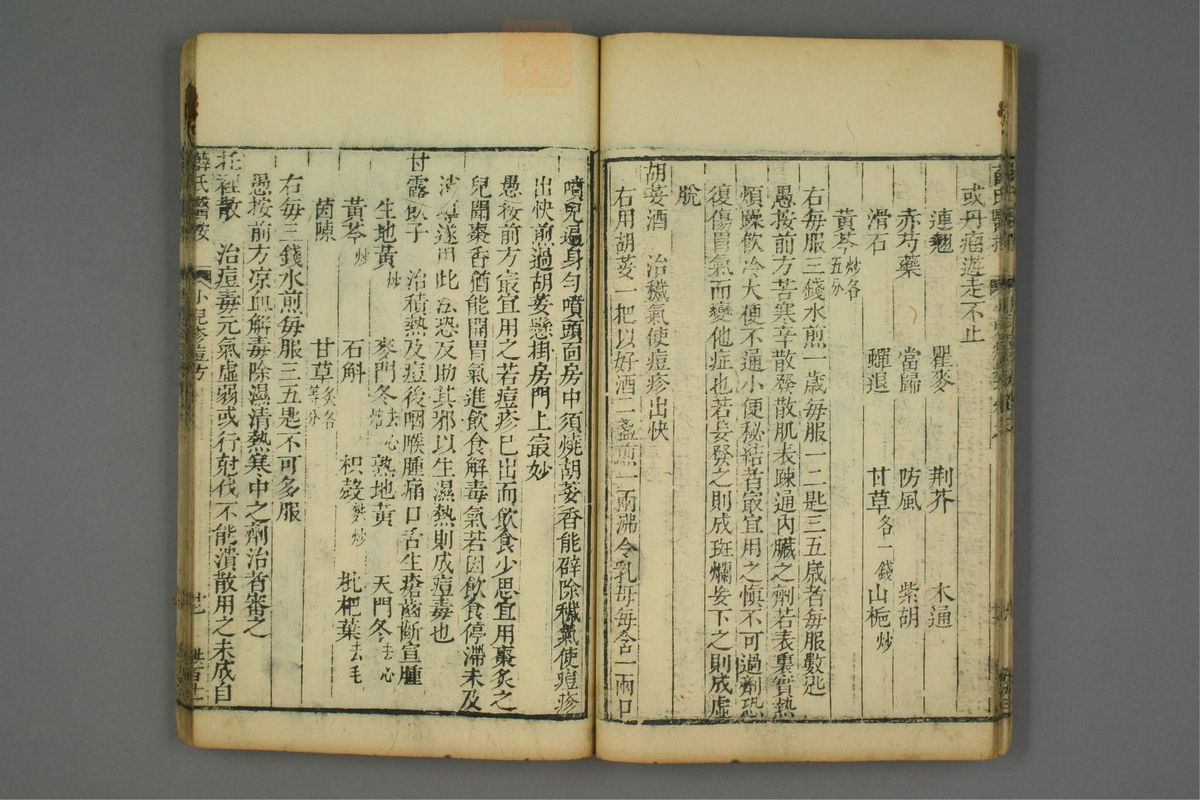 或丹瘤遊走不止
連翹 瞿麥 荆芥 木通
赤芍藥 當歸 防風 紫胡
滑石 蟬退 甘草各一錢 山梔炒
黃芩炒各五分
右每服三錢水煎一歲每服一二匙三五歲者每服數匙
愚按前方苦寒辛散發散肌表疎通內臟之劑若表裏實熱
煩躁飲冷大便不通小便秘結者㝡宜用之慎不可過劑恐
復傷胃氣而變他症也若妄發之則成斑爛妄下之則成虛
脫
胡荽酒 治穢氣使痘疹出快
右用胡荽一把以好酒二盞煎一兩沸令乳母每含一兩口
噴兒遍身勻噴頭面房中須燒胡荽香能辟除穢氣使痘疹
出快煎過胡荽懸掛房門上㝡妙
愚按前方㝡宜用之若痘疹已出而飲食少思宜用棗炙之
兒聞棗香猶能開胃氣進飲食解毒氣若因飲食停滯未及
消導遂用此法恐反助其邪以生濕熱則成痘毒也
甘露飲子 治積熱及痘後咽喉腫痛口舌生瘡齒斷宣腫
生地黃炒 麥門冬去心焙 熟地黃 天門冬去心
黃芩炒 石斛 枳殼麩炒 枇杷葉去毛
茵陳 甘草炙各等分
右每三錢水煎每服三五匙不可多服
愚按前方凉血解毒除濕清熱寒中之劑治者審之
托裡散 治痘毒元氣虛弱或行尅伐不能潰散用之未成自
薛氏醫按 小兒痘疹方